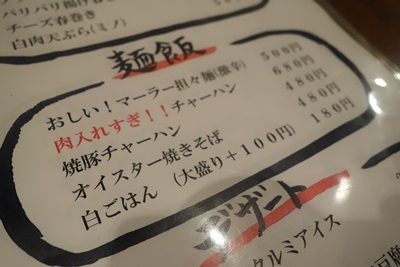 チーズ春巻き
白肉天ぷら(ミノ)
麺飯
おしい!マーラー担々麺(激辛) 500円
肉入れすぎ!!チャーハン 680円
焼豚チャーハン 480円
オイスター焼きそば 480円
白ごはん (大盛り+100円) 180円
デザート
タルミアイス